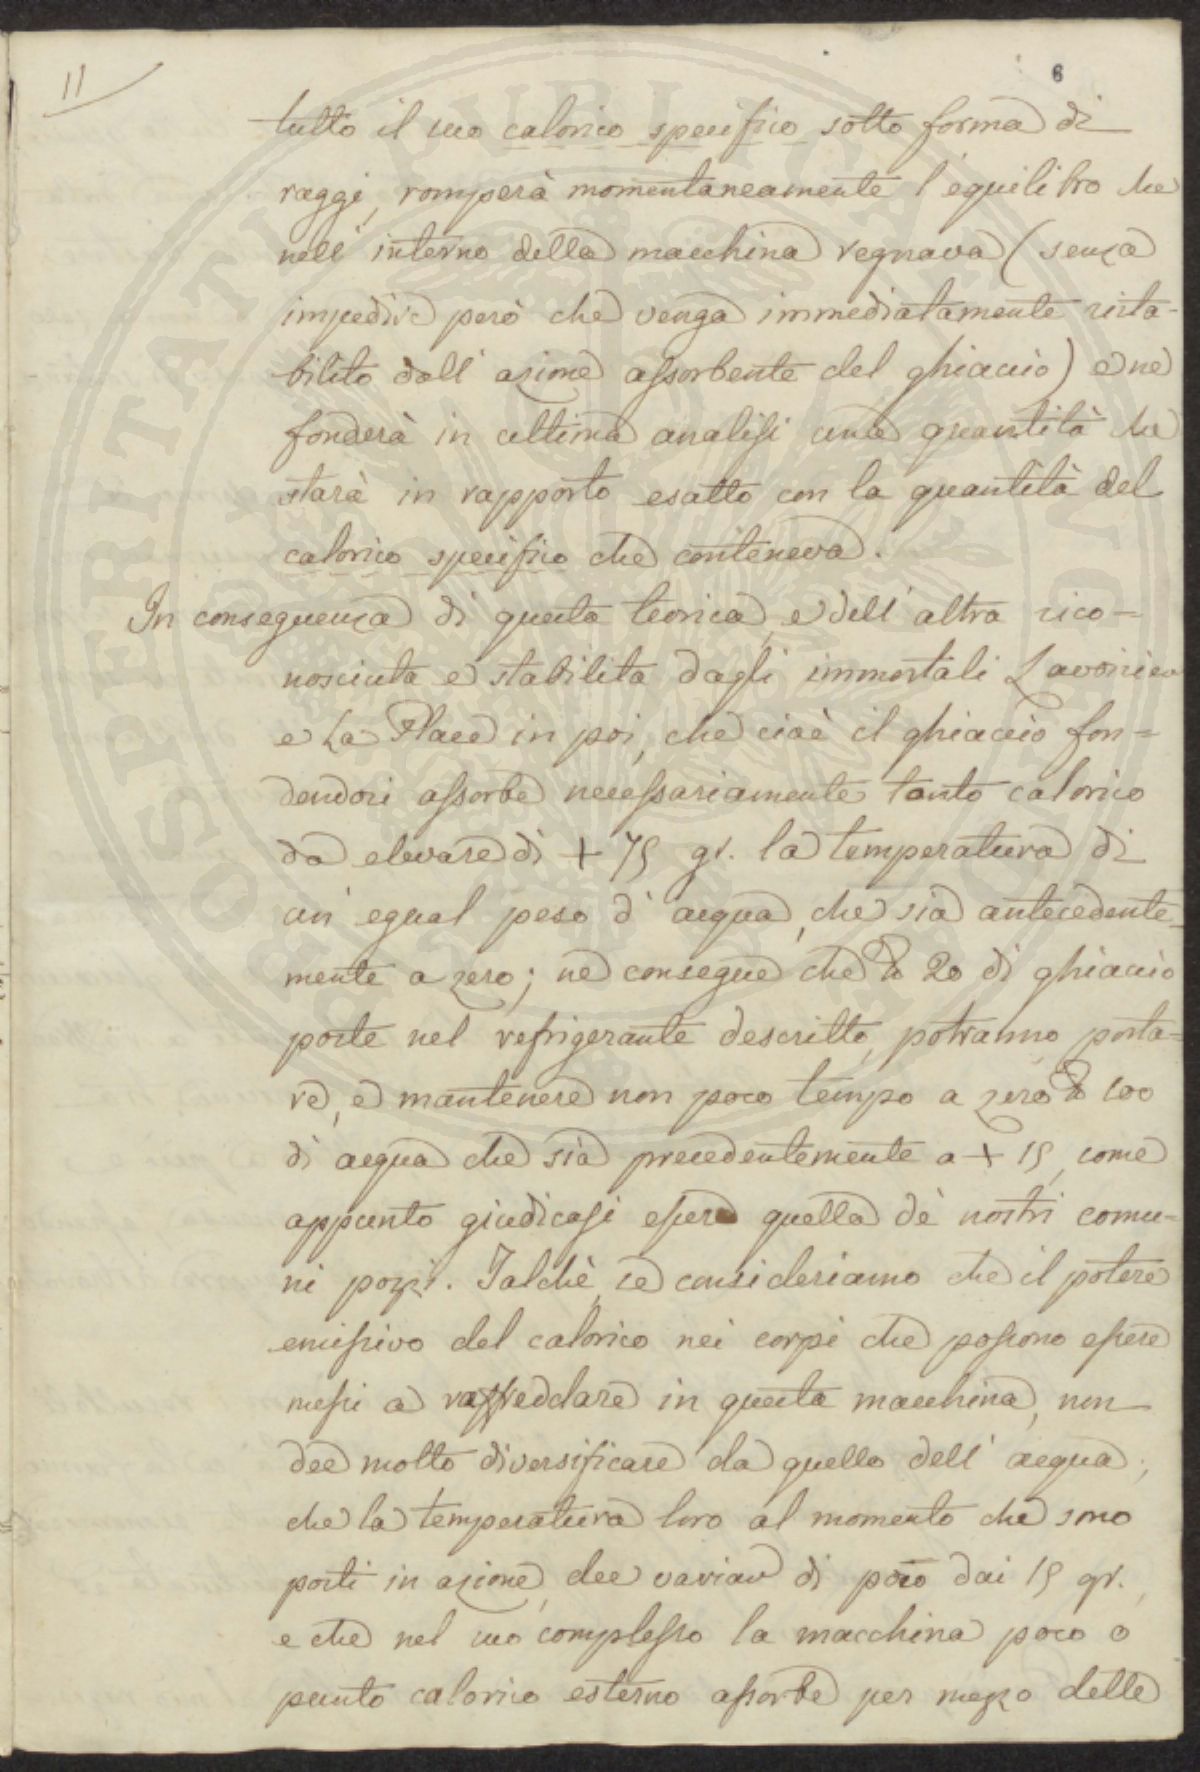 11
6
tutto il suo calorico specifico sotto forma di
raggi, romperà momentaneamente l'equilibro che
nell' interno della macchina regnava (senza
impedire però che venga immediatamente rista-
bilito dall' azione assorbente del ghiaccio) e ne
fonderà in ultima analisi una quantità che
starà in rapporto esatto con la quantità del
calorico specifico che conteneva.
In conseguenza di questa teorica, e dell' altra rico-
nosciuta e stabilita dagli immortali Lavoisier
e La Place in poi, che cioè il ghiaccio fon-
dendosi assorbe necessariamente tanto calorico
da elevare di + 75 gr. la temperatura di
un egual peso d' acqua, che sia antecedente-
mente a zero; ne consegue che 20 di ghiaccio
poste nel refrigerante descritto, potranno porta-
re, e mantenere non poco tempo a zero 100
di acqua che sia precedentemente a + 15, come
appunto giudicasi essere quella dè nostri comu-
ni pozzi. Talchè, se consideriamo che il potere
emissivo del calorico nei corpi che possono essere
messi a raffreddare in questa macchina, non
dee molto diversificare da quello dell' acqua;
che la temperatura loro al momento che sono
posti in azione, dee variar di poco dai 15 gr.,
e che nel suo complesso la macchina poco o
punto calorico esterno assorbe per mezzo delle
PROSPERITATI PUBLICAE